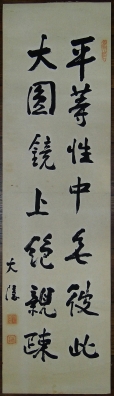 平等性中无彼此
大圓鏡上絶親疎
大蟻